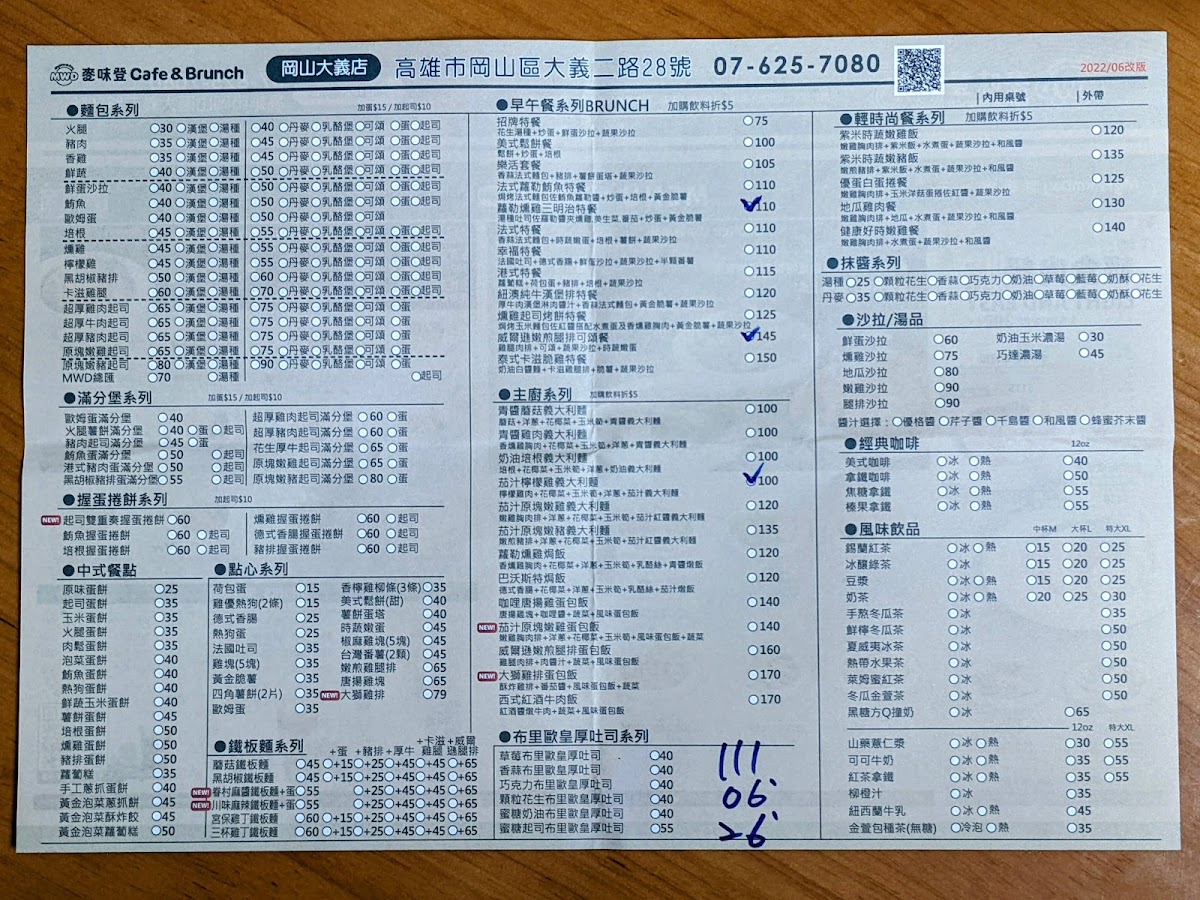 MWD 麥味登 Cafe & Brunch 岡山大義店 高雄市岡山區大義二路28號 07-625-7080
2022/06改版
內用桌號 外帶
●麵包系列 加蛋$15 / 加起司$10
火腿 ○30 ○漢堡○湯種 ○40 ○丹麥○乳酪堡○可頌 ○蛋○起司
豬肉 ○35 ○漢堡○湯種 ○45 ○丹麥○乳酪堡○可頌 ○蛋○起司
香雞 ○35 ○漢堡○湯種 ○45 ○丹麥○乳酪堡○可頌 ○蛋○起司
鮮蔬 ○35 ○漢堡○湯種 ○45 ○丹麥○乳酪堡○可頌 ○蛋○起司
鮮蛋沙拉 ○40 ○漢堡○湯種 ○50 ○丹麥○乳酪堡○可頌 ○蛋○起司
鮪魚 ○40 ○漢堡○湯種 ○50 ○丹麥○乳酪堡○可頌 ○蛋○起司
歐姆蛋 ○40 ○漢堡○湯種 ○50 ○丹麥○乳酪堡○可頌
培根 ○45 ○漢堡○湯種 ○55 ○丹麥○乳酪堡○可頌 ○蛋○起司
燻雞 ○45 ○漢堡○湯種 ○55 ○丹麥○乳酪堡○可頌 ○蛋○起司
檸檬雞 ○45 ○漢堡○湯種 ○55 ○丹麥○乳酪堡○可頌 ○蛋○起司
黑胡椒豬排 ○50 ○漢堡○湯種 ○60 ○丹麥○乳酪堡○可頌 ○蛋○起司
卡滋雞腿 ○60 ○漢堡○湯種 ○70 ○丹麥○乳酪堡○可頌 ○蛋○起司
超厚雞肉起司 ○65 ○漢堡○湯種 ○75 ○丹麥○乳酪堡○可頌 ○蛋
超厚牛肉起司 ○65 ○漢堡○湯種 ○75 ○丹麥○乳酪堡○可頌 ○蛋
超厚豬肉起司 ○65 ○漢堡○湯種 ○75 ○丹麥○乳酪堡○可頌 ○蛋
原塊嫩雞起司 ○65 ○漢堡○湯種 ○75 ○丹麥○乳酪堡○可頌 ○蛋
原塊嫩豬起司 ○80 ○漢堡○湯種 ○90 ○丹麥○乳酪堡○可頌 ○蛋
MWD總匯 ○70 ○湯種 ○起司
●滿分堡系列 加蛋$15 / 加起司$10
歐姆蛋滿分堡 ○40
火腿薯餅滿分堡 ○40 ○蛋 ○起司
豬肉起司滿分堡 ○45 ○蛋
鮪魚蛋滿分堡 ○50 ○起司
港式豬肉蛋滿分堡○50 ○起司
黑胡椒豬排蛋滿分○55 ○起司
超厚雞肉起司滿分堡 ○60 ○蛋
超厚豬肉起司滿分堡 ○60 ○蛋
花生厚牛起司滿分堡 ○65 ○蛋
原塊嫩雞起司滿分堡 ○65 ○蛋
原塊嫩豬起司滿分堡 ○80 ○蛋
●握蛋捲餅系列 加起司$10
NEW! 起司雙重奏握蛋捲餅○60
鮪魚握蛋捲餅 ○60 ○起司
培根握蛋捲餅 ○60 ○起司
燻雞握蛋捲餅 ○60 ○起司
德式香腸握蛋捲餅 ○60 ○起司
豬排握蛋捲餅 ○60 ○起司
●中式餐點
原味蛋餅 ○25
起司蛋餅 ○35
玉米蛋餅 ○35
火腿蛋餅 ○35
肉鬆蛋餅 ○35
泡菜蛋餅 ○40
鮪魚蛋餅 ○40
熱狗蛋餅 ○40
鮮蔬玉米蛋餅 ○40
薯餅蛋餅 ○45
培根蛋餅 ○50
燻雞蛋餅 ○50
豬排蛋餅 ○50
蘿蔔糕 ○35
手工蔥抓蛋餅 ○40
黃金泡菜蔥抓餅 ○45
黃金泡菜酥炸餃 ○45
黃金泡菜蘿蔔糕 ○50
●點心系列
荷包蛋 ○15
雞優熱狗(2條) ○15
德式香腸 ○25
熱狗蛋 ○25
法國吐司 ○35
雞塊(5塊) ○35
黃金脆薯 ○35
四角薯餅(2片) ○35
歐姆蛋 ○35
香檸雞柳條(3條)○35
美式鬆餅(甜) ○40
薯餅蛋塔 ○40
時蔬嫩蛋 ○45
椒麻雞塊(5塊) ○45
台灣番薯(2顆) ○45
嫩煎雞腿排 ○65
唐揚雞塊 ○65
NEW! 大獅雞排 ○79
●鐵板麵系列 +蛋 +豬排 +厚牛 +卡滋雞腿 +威爾遜腿排
蘑菇鐵板麵 ○45○+15○+25○+45○+45○+65
黑胡椒鐵板麵 ○45○+15○+25○+45○+45○+65
NEW! 眷村麻醬鐵板麵+蛋○55 ○+25○+45○+45○+65
NEW! 川味麻辣鐵板麵+蛋○55 ○+25○+45○+45○+65
宮保雞丁鐵板麵 ○60○+15○+25○+45○+45○+65
三杯雞丁鐵板麵 ○60○+15○+25○+45○+45○+65
●早午餐系列BRUNCH 加購飲料折$5
招牌特餐 ○75
花生湯種+炒蛋+鮮蛋沙拉+蔬果沙拉
美式鬆餅餐 ○100
鬆餅+炒蛋+培根
樂活套餐 ○105
香蒜法式麵包+豬排+薯餅蛋塔+蔬果沙拉
法式蘿勒鮪魚特餐 ○110
焗烤法式麵包佐鮪魚蘿勒醬+炒蛋+培根+黃金脆薯
蘿勒燻雞三明治特餐 ✓110
湯種吐司佐蘿勒醬夾燻雞,美生菜,番茄+炒蛋+黃金脆薯
法式特餐 ○110
香蒜法式麵包+時蔬嫩蛋+培根+薯餅+蔬果沙拉
幸福特餐 ○110
法國吐司+德式香腸+鮮蛋沙拉+蔬果沙拉+半顆番薯
港式特餐 ○115
蘿蔔糕+荷包蛋+豬排+培根+蔬果沙拉
紐澳純牛漢堡排特餐 ○120
厚牛肉漢堡淋肉醬汁+香蒜法式麵包+黃金脆薯+蔬果沙拉
燻雞起司烤餅特餐 ○125
焗烤玉米麵包佐紅醬搭配水煮蛋及香燻雞胸肉+黃金脆薯+蔬果沙拉
威爾遜嫩煎腿排可頌餐 ✓145
雞腿肉排+可頌+蔬果沙拉+時蔬嫩蛋
泰式卡滋脆雞特餐 ○150
奶油白醬麵+卡滋雞腿排+脆薯+蔬果沙拉
●主廚系列 加購飲料折$5
青醬蘑菇義大利麵 ○100
蘑菇+洋蔥+花椰菜+玉米筍+青醬義大利麵
青醬雞肉義大利麵 ○100
香燻雞胸肉+花椰菜+玉米筍+洋蔥+青醬義大利麵
奶油培根義大利麵 ○100
培根+花椰菜+玉米筍+洋蔥+奶油義大利麵
茄汁檸檬雞義大利麵 ✓100
檸檬雞肉+花椰菜+玉米筍+洋蔥+茄汁義大利麵
茄汁原塊嫩雞義大利麵 ○120
嫩雞胸肉排+洋蔥+花椰菜+玉米筍+茄汁紅醬義大利麵
茄汁原塊嫩豬義大利麵 ○135
嫩煎豬排+洋蔥+花椰菜+玉米筍+茄汁紅醬義大利麵
蘿勒燻雞焗飯 ○120
香燻雞肉+花椰菜+洋蔥+玉米筍+乳酪絲+青醬燉飯
巴沃斯特焗飯 ○120
德式香腸+花椰菜+洋蔥+玉米筍+乳酪絲+茄汁燉飯
咖哩唐揚雞蛋包飯 ○140
唐揚雞塊+咖哩醬+蔬菜+風味蛋包飯
NEW! 茄汁原塊嫩雞蛋包飯 ○140
嫩雞胸肉排+洋蔥+花椰菜+玉米筍+風味蛋包飯+蔬菜
威爾遜嫩煎腿排蛋包飯 ○160
雞腿肉排+肉醬汁+蔬菜+風味蛋包飯
NEW! 大獅雞排蛋包飯 ○170
酥炸雞排+番茄醬+風味蛋包飯+蔬菜
西式紅酒牛肉飯 ○170
紅酒醬燉牛肉+蔬菜+風味蛋包飯
●布里歐皇厚吐司系列
草莓布里歐皇厚吐司 ○40
香蒜布里歐皇厚吐司 ○40
巧克力布里歐皇厚吐司 ○40
顆粒花生布里歐皇厚吐司 ○40
蜜糖奶油布里歐皇厚吐司 ○40
蜜糖起司布里歐皇厚吐司 ○55
111
06.
26.
●輕時尚餐系列 加購飲料折$5
紫米時蔬嫩雞飯 ○120
嫩雞胸肉排+紫米飯+水煮蛋+蔬果沙拉+和風醬
紫米時蔬嫩豬飯 ○135
嫩煎豬排+紫米飯+水煮蛋+蔬果沙拉+和風醬
優蛋白蛋捲餐 ○125
嫩雞胸肉排+玉米洋菇蛋捲佐紅醬+蔬果沙拉
地瓜雞肉餐 ○130
嫩雞胸肉排+地瓜+水煮蛋+蔬果沙拉+和風醬
健康好時嫩雞餐 ○140
嫩雞胸肉排+水煮蛋+蔬果沙拉+和風醬
●抹醬系列
湯種○25 ○顆粒花生○香蒜○巧克力○奶油○草莓○藍莓○奶酥○花生
丹麥○35 ○顆粒花生○香蒜○巧克力○奶油○草莓○藍莓○奶酥○花生
●沙拉/湯品
鮮蛋沙拉 ○60 奶油玉米濃湯 ○30
燻雞沙拉 ○75 巧達濃湯 ○45
地瓜沙拉 ○80
嫩雞沙拉 ○90
腿排沙拉 ○90
醬汁選擇：○優格醬○芹子醬○千島醬○和風醬○蜂蜜芥末醬
●經典咖啡 12oz
美式咖啡 ○冰 ○熱 ○40
拿鐵咖啡 ○冰 ○熱 ○50
焦糖拿鐵 ○冰 ○熱 ○55
榛果拿鐵 ○冰 ○熱 ○55
●風味飲品 中杯M 大杯L 特大XL
錫蘭紅茶 ○冰○熱 ○15 ○20 ○25
冰釀綠茶 ○冰 ○15 ○20 ○25
豆漿 ○冰○熱 ○15 ○20 ○25
奶茶 ○冰○熱 ○20 ○25 ○30
手熬冬瓜茶 ○冰 ○35
鮮檸冬瓜茶 ○冰 ○50
夏威夷冰茶 ○冰 ○50
熱帶水果茶 ○冰 ○50
萊姆蜜紅茶 ○冰 ○50
冬瓜金萱茶 ○冰 ○50
黑糖方Q撞奶 ○冰 ○65
12oz 特大XL
山藥薏仁漿 ○冰○熱 ○30 ○55
可可牛奶 ○冰○熱 ○35 ○55
紅茶拿鐵 ○冰○熱 ○35 ○55
柳橙汁 ○冰 ○35
紐西蘭牛乳 ○冰○熱 ○45
金萱包種茶(無糖) ○冷泡○熱 ○35